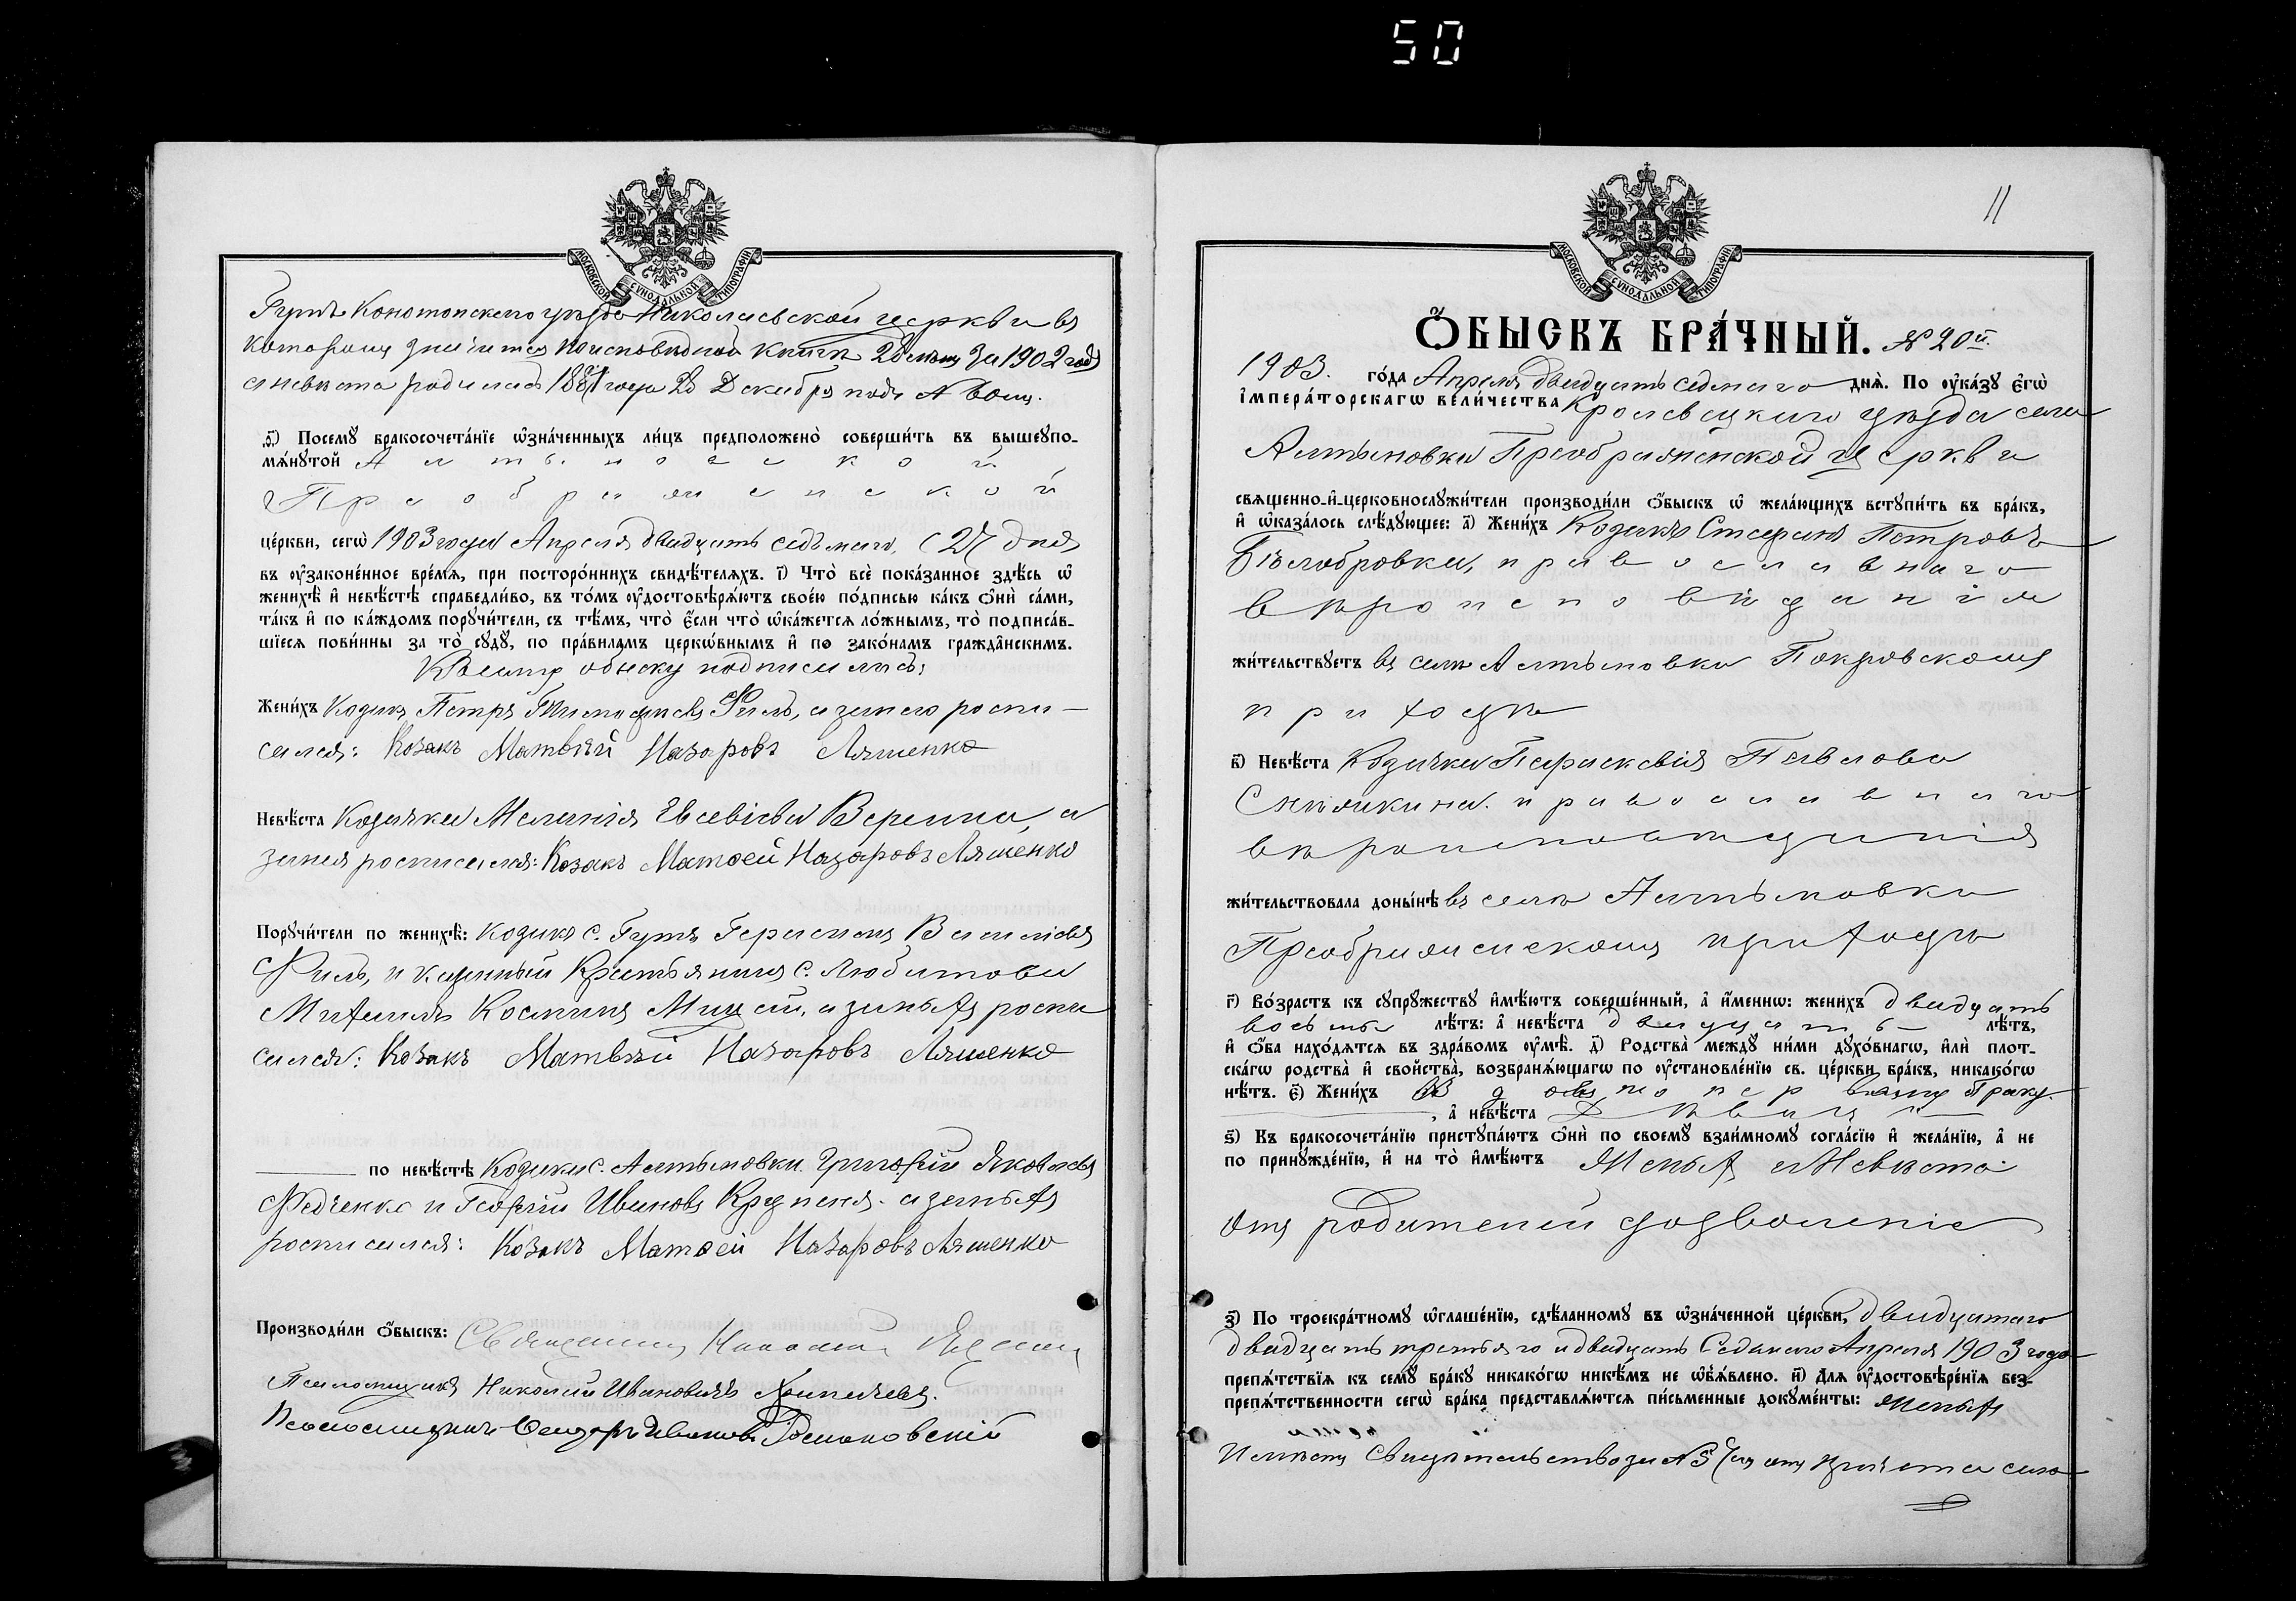 50
МОСКОВСКОЙ СѴНОДАЛЬНОЙ ТИПОГРАФІИ
Гутъ Конотопскаго уѣзда Николаевской церкви въ
которому значится по исповѣдной книгѣ за 1902 годъ
а невѣста родилась года 28 Декабря подъ №
Посему бракосочетаніе означенныхъ лицъ предположено совершить въ вышеупо-
мянутой Алтыновской
Преображенской
церкви, сего 1903 года Апреля двадцать седьмаго, (27) дня
въ узаконенное время, при постороннихъ свидѣтеляхъ. і) Что все показанное здѣсь о
женихѣ и невѣстѣ справедливо, въ томъ удостовѣряютъ своею подписью какъ они сами,
такъ и по каждомъ поручители, съ тѣмъ, что если что окажется ложнымъ, то подписав-
шіеся повинны за то суду, по правиламъ церковнымъ и по законамъ гражданскимъ.
К сему обыску подписались:
Женихъ Козакъ Петръ Тимофеевъ Филь, а за него роспи-
сался: Козакъ Матвѣй Назаровъ Ляшенко
Невѣста Козачка Меланія Евсевіева Вереща, а
за нея росписался: Козакъ Матвей Назаровъ Ляшенко
Поручители по женихѣ: Козакъ с. Гутъ Герасимъ Василіевъ
Филь, и казенный Крестьянинъ с. Любитова
Михаилъ Косминъ а за ныхъ роспи
сался: Козакъ Матвѣй Назаровъ Ляшенко
по невѣстѣ Козаки с. Алтыновки Григорій Яковлевъ
Федченко и Георгій Ивановъ Крупеня а за ныхъ
росписался: Козакъ Матвей Назаровъ Ляшенко
Производили обыскъ: Священникъ Николай
Псаломщикъ Николай Ивановичъ
Псаломщикъ Ивановъ
11
МОСКОВСКОЙ СѴНОДАЛЬНОЙ ТИПОГРАФІИ
ОБЫСКЪ БРАЧНЫЙ. № 20й.
1903. года Апреля двадцать седмаго дня. По указу его
императорскаго величества Кролевецкаго уѣзда села
Алтыновки Преображенской церкви
священно-и-церковнослужители производили обыскъ о желающихъ вступить въ бракъ,
и оказалось слѣдующее: а) Женихъ Козакъ Стефанъ Петровъ
Бѣлобровка, православнаго
вѣроисповѣданія
жительствуетъ въ селѣ Алтыновки Покровскомъ
приходѣ
в) Невѣста Козачка Параскевія Павлова
православнаго
вѣроисповѣданія
жительствовала донынѣ въ селѣ Алтыновки
Преображенскомъ приходѣ
г) Возрастъ къ супружеству имѣютъ совершенный, а именно: женихъ двадцать
восьмы лѣтъ: а невѣста двадцать лѣтъ,
и оба находятся въ здравомъ умѣ. д) Родства между ними духовнаго, или плот-
скаго родства и свойства, возбраняющаго по установленію св. церкви бракъ, никакого
нѣтъ. є) Женихъ вдовъ по первому браку.
, а невѣста дѣвица
ѕ) Къ бракосочетанію приступаютъ они по своему взаимному согласію и желанію, а не
по принужденію, и на то имѣютъ Женыхъ и Невѣста
отъ родителей дозволеніе
з) По троекратному оглашенію, сдѣланному въ означенной церкви, двадцатаго
двадцать третьяго и двадцать Седмаго Апреля 1903 года
препятствія къ сему браку никакого никѣмъ не объявлено. и) Для удостовѣренія без-
препятственности сего брака представляются письменные документы: Женыхъ
Свидѣтельство за № отъ причта села